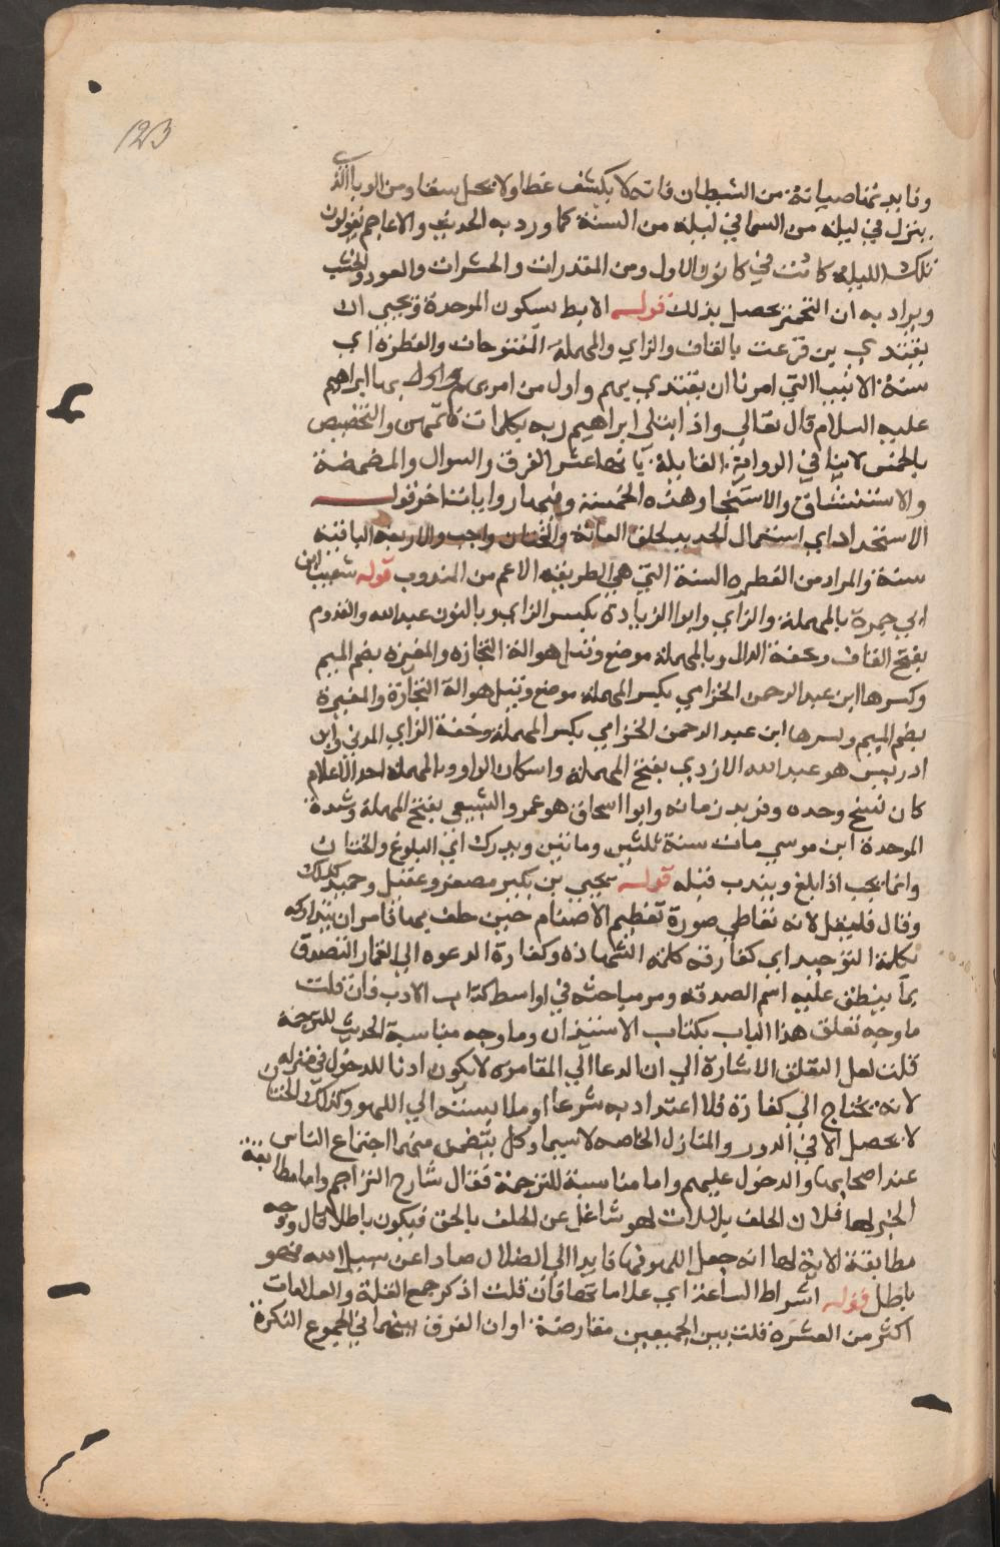 123
وفايدتها صيانة من الشيطان فانه لا يكشف غطا ولا يحل سقا ومن الوبا الذي
ينزل في ليلة من السما في ليلة من السنة كما ورد به الحديث والاعاجم يقولون
تلك الليلة كانت في كانون الاول ومن المقذرات والحشرات والعود والخشب
ويراد به ان التخمير يحصل بذلك قوله الابط بسكون الموحدة ويحيى ان
يقتدي بن قزعت بالقاف والزاي والمهملة المفتوحات والفطرة اي
سنة الانبيا التي امرنا ان نقتدي بهم واول من امر بها ابراهيم
عليه السلام قال تعالى واذ ابتلى ابراهيم ربه بكلمات فاتمهن والتخصيص
بالخمس لاينافي الرواية القايلة بانها عشر الفرق والسواك والمضمضة
والاستنشاق والاستنجا وهذه الخمسة وفيها روايات اخر قوله
الاستحداد اي استعمال الحديد لحلق العانة والختان واجب والاربعة الباقية
سنة والمراد من الفطرة السنة التي هي الطريقة الاعم من المندوب قوله شعيب ابن
ابي حمزة بالمهملة والزاي وابوا الزنادي بكسر الزاي وبالنون عبدالله والقدوم
بفتح القاف وخفة الدال وبالمهملة موضع وقيل هو الة النجاره والمغيرة بضم الميم
وكسرها ابن عبد الرحمن الحزامي بكسر المهملة موضع وقيل هو الة النجارة والمغيرة
بضم الميم وبسرها ابن عبد الرحمن الحزامي بكسر المهملة وخفة الزاي المدني وابن
ادريس هو عبدالله الازدي بفتح المهملة واسكان الواو وبالمهملة احد الاعلام
كان نسيج وحده وفريد زمانه وابوا اسحاق هو عمرو السبيعي بفتح المهملة وشدة
الموحدة ابن موسي مات سنة ثلثين وماتين ويدرك اي البلوغ والختان
وانما يجب اذا بلغ ويندب قبله قوله يحيى بن بكير مصغر وعقيل وحميد كذلك
وقال فليقل لانه تعاطي صورة تعظيم الاصنام حين حلف بها فامر ان يتداركه
بكلمة التوحيد اي كفارته كلمة الشهادة وكفارة الدعوه الي القمار التصدق
بما ينطق عليه اسم الصدقة ومر مباحثه في اواسط كتاب الادب فان قلت
ما وجه تعلق هذا الباب بكتاب الاستيذان وما وجه مناسبة الحديث للترجمة
قلت لعل التعلق الاشارة الي ان الدعا الي المقامرة لا يكون اذنا للدخول في منزله
لانه يحتاج الي كفارة فلا اعتداد به شرعا او ما يستند الي اللهو وكذلك الختان
لا يحصل الا في الدور والمنازل الخاصه لاسيما وكل يتضمن منهما اجتماع الناس
عند اصحابها والدخول عليهم واما مناسبة للترجمة فقال شارح التراجم واما مطابقة
الخبر لها فلان الحلف باللات لهو شاغل عن الحلف بالحق فيكون باطلا قال ووجه
مطابقة الاية لها انه جعل اللهو فيها قايدا الي الضلال صادا عن سبيل الله فهو
باطل قوله اشراط الساعة اي علاماتها فان قلت اذكر جمع القلة والعلامات
اكثر من العشرة قلت بين الجميعين مقارضة او ان الفرق بينهما في الجموع النكرة